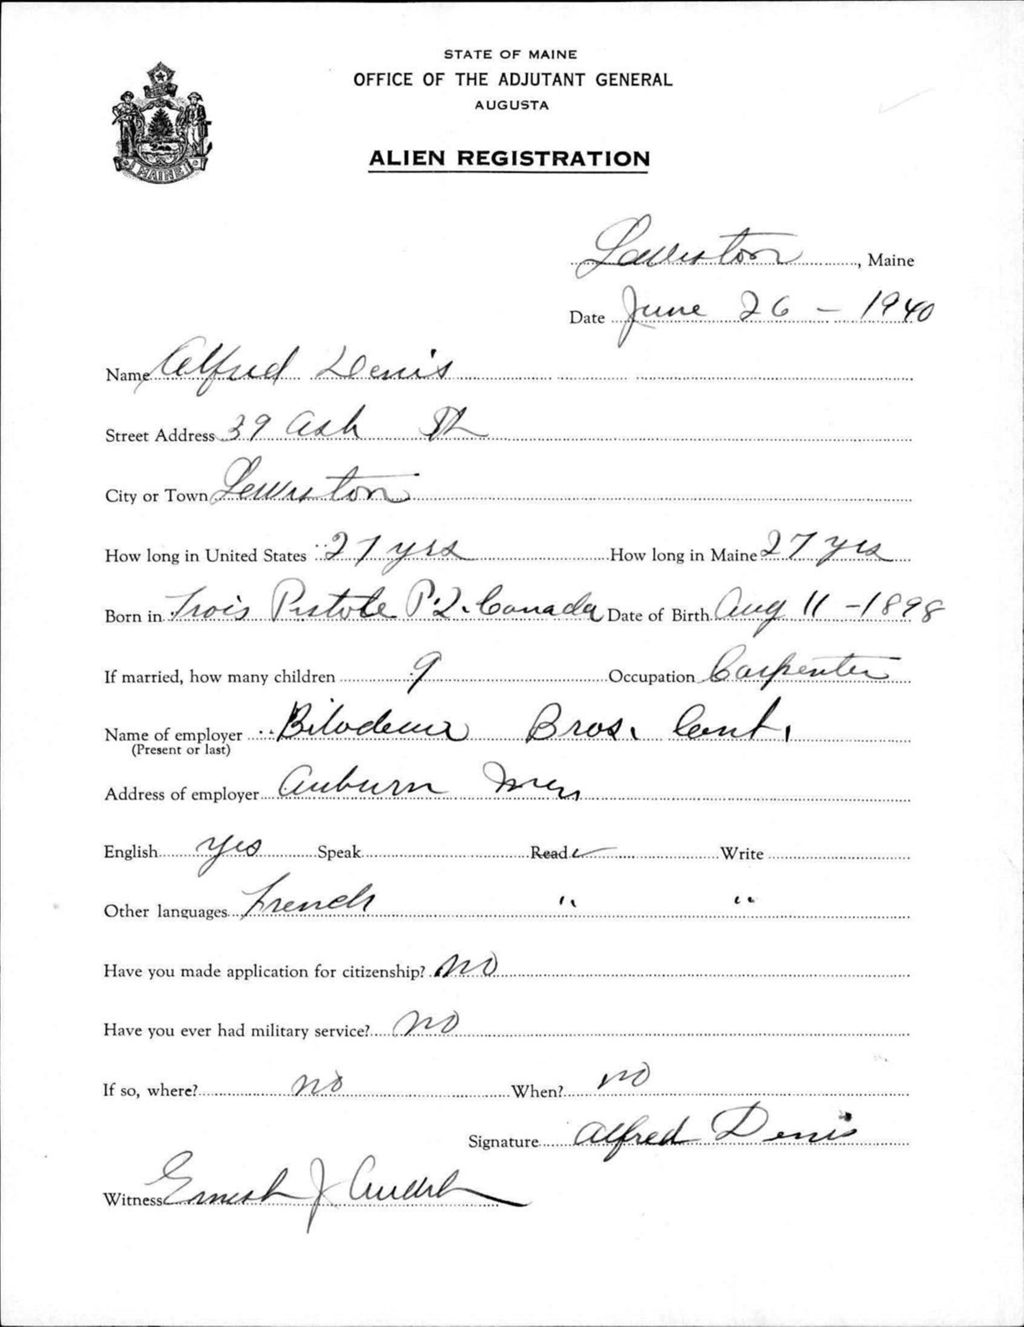 STATE OF MAINE
OFFICE OF THE ADJUTANT GENERAL
AUGUSTA
ALIEN REGISTRATION
MAINE
Lewiston, Maine
Date June 26 - 1940
Name Alfred Denis
Street Address 39 Ash St
City or Town Lewiston
How long in United States 27 yrs How long in Maine 27 yrs
Born in Trois Pistole P.Q. Canada Date of Birth Aug 11 - 1898
If married, how many children 9 Occupation Carpenter
Name of employer Bilodeau Bros. Cont.
(Present or last)
Address of employer Auburn Me
English Yes Speak Read ✓ Write
Other languages French " "
Have you made application for citizenship? No
Have you ever had military service? No
If so, where? no When? no
Signature Alfred Denis
Witness Ernest J